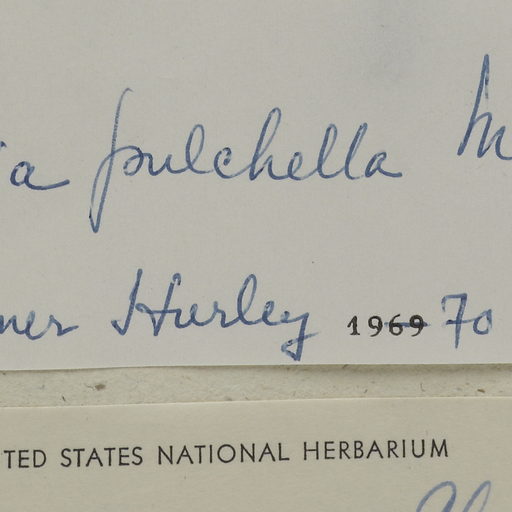 ia pulchella M
ner Hurley 1969 70
TED STATES NATIONAL HERBARIUM